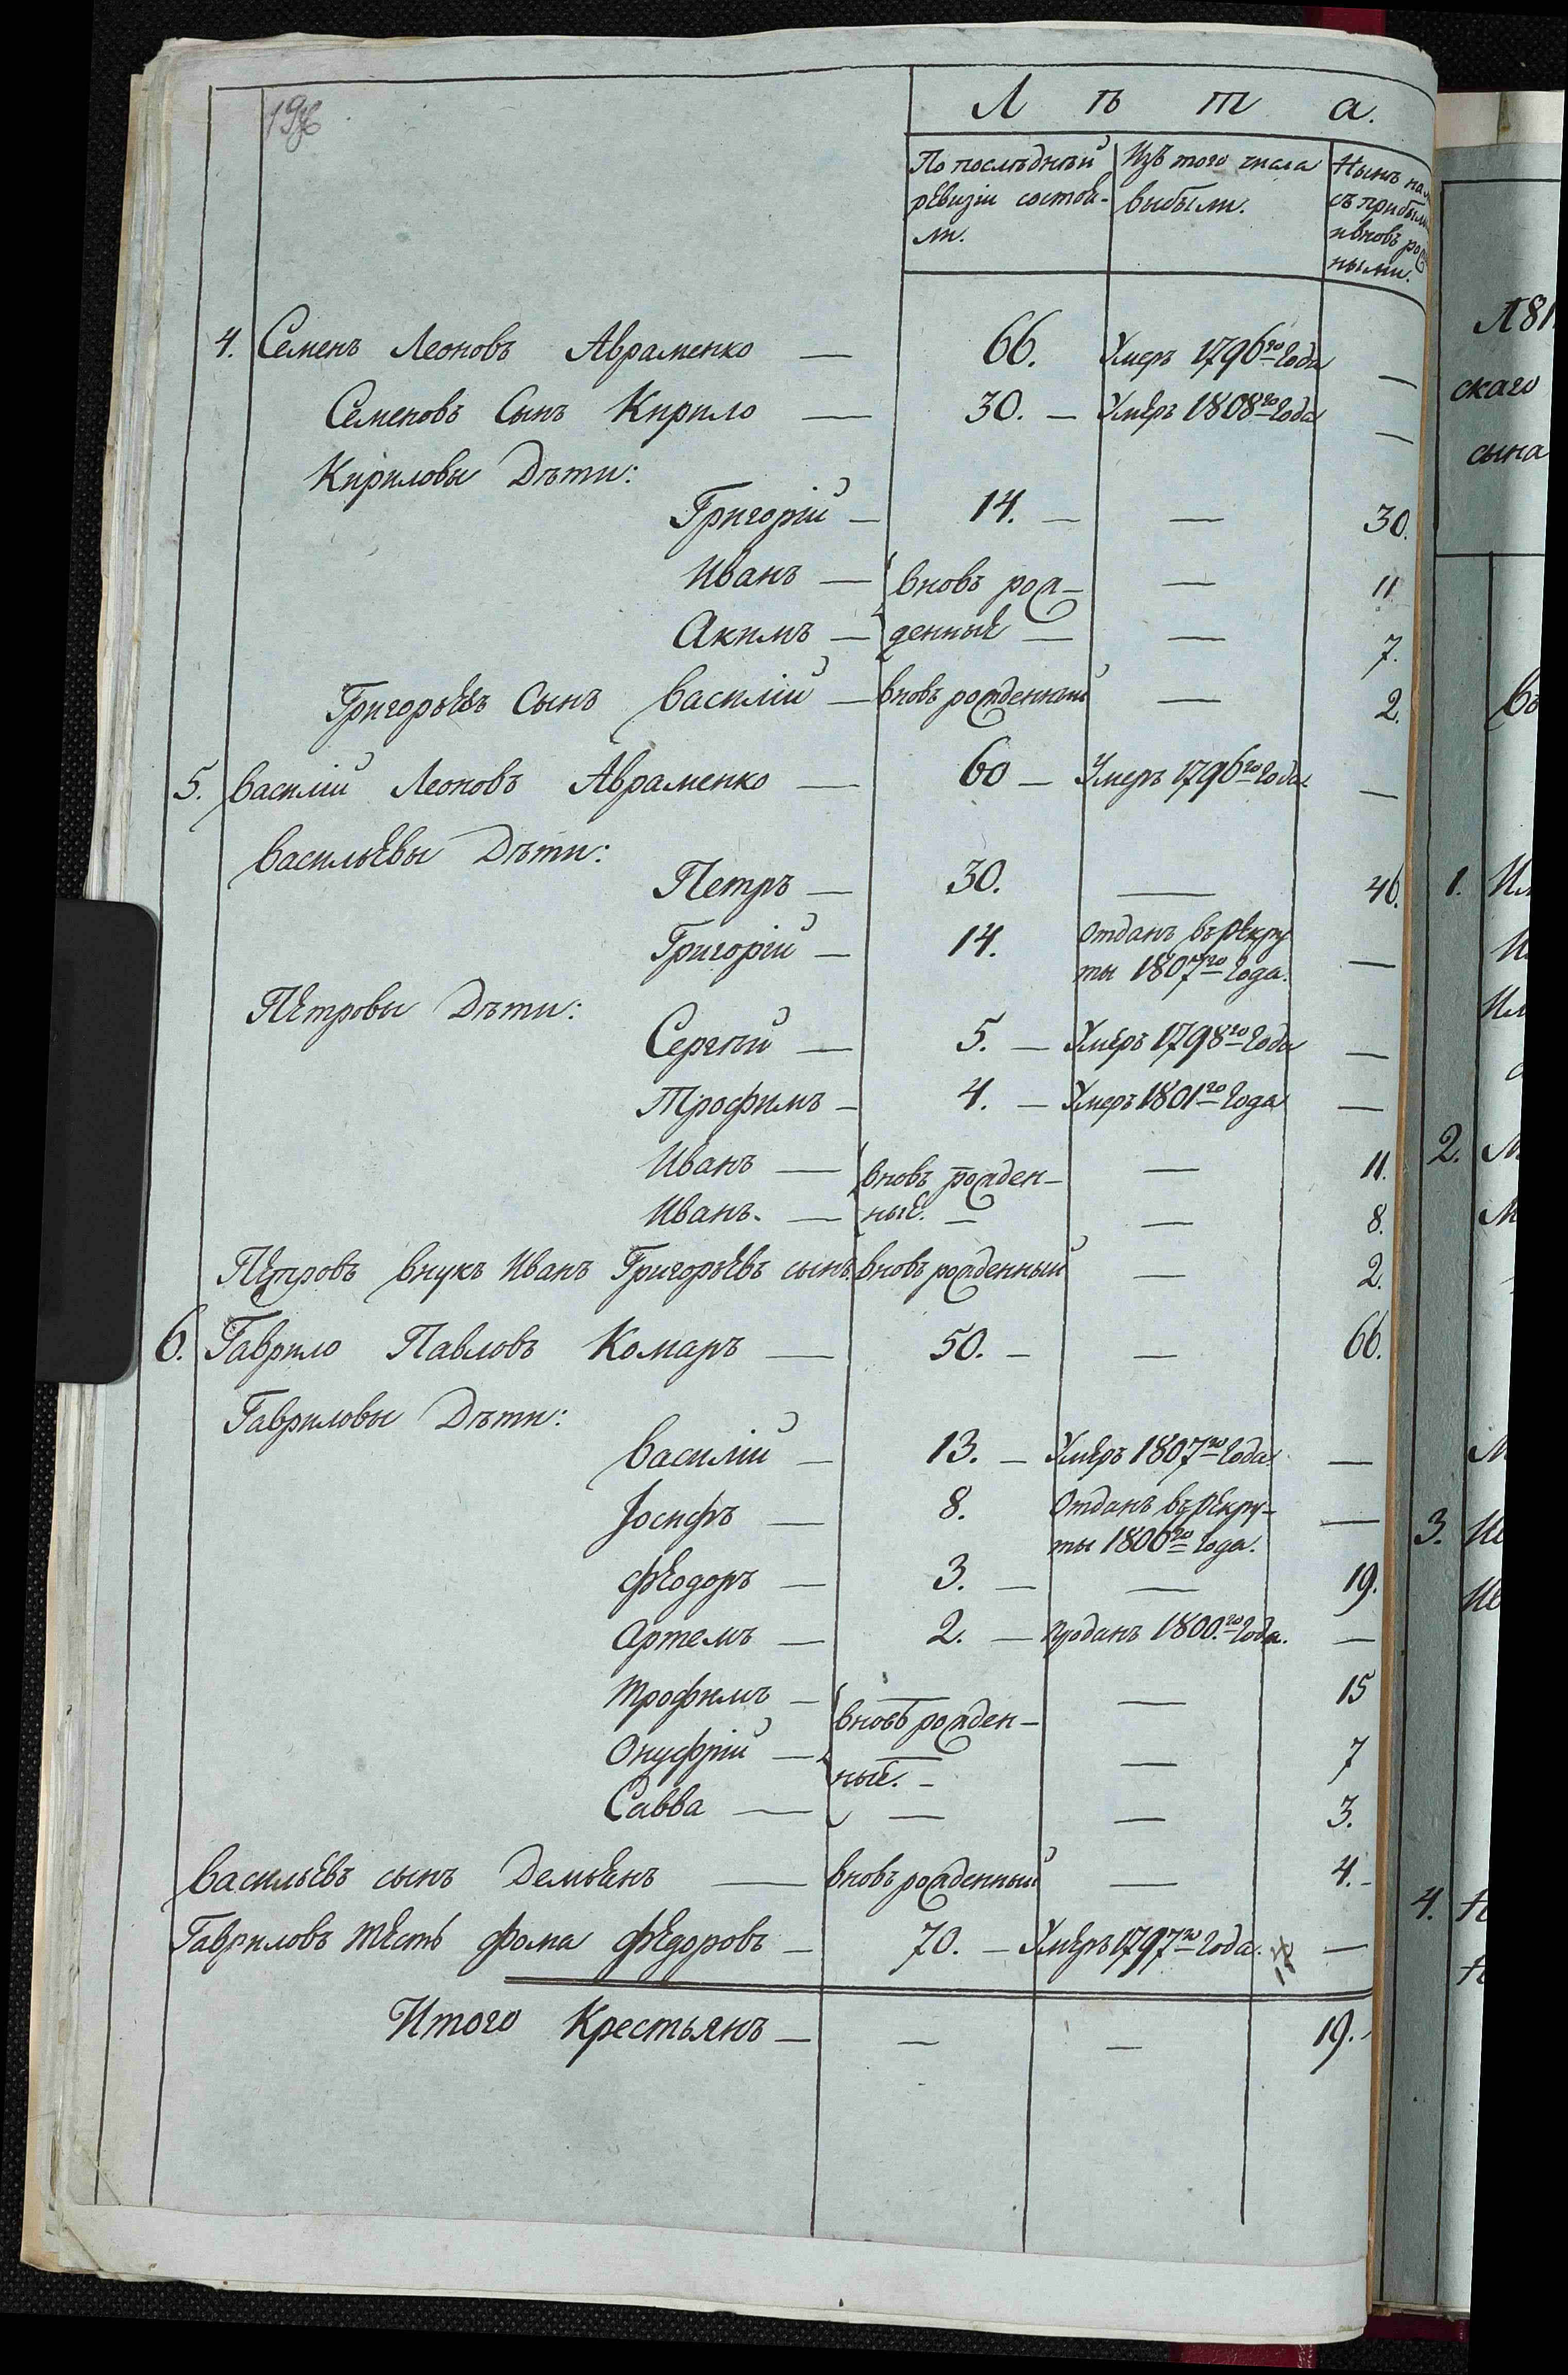 Л ѣ т а.
По послѣднѣй ревизіи состоя-
ли.
Изъ того числа выбыли.
Нынѣ на
съ прибыл
и вновь ро
ными.
4. Семенъ Леоновъ Авраменко — 66. Умеръ 1796го Года —
Семеновъ Сынъ Кирило — 30. — Умеръ 1808го Года —
Кириловы Дѣти:
Григорій — 14. — — 30.
Иванъ — вновь рож- — 11
Акимъ — денные — — 7.
Григорьевъ Сынъ Василій — вновь рожденный — 2.
5. Василій Леоновъ Авраменко — 60 — Умеръ 1796го Года. —
Васильевы Дѣти:
Петръ — 30. — 46.
Григорій — 14. Отданъ въ рекру
ты 1807го Года. —
Петровы Дѣти:
Сергѣй — 5. — Умеръ 1798го Года —
Трофимъ — 4. — Умеръ 1801го Года —
Иванъ — вновь рожден- — 11.
Иванъ. — ные. — — 8.
Петровъ внукъ Иванъ Григорьевъ сынъ вновь рожденный — 2.
6. Гаврило Павловъ Комаръ — 50. — — 66.
Гавриловы Дѣти:
Василій — 13. — Умеръ 1807го Года. —
Іосифъ — 8. Отданъ въ рекру-
ты 1806го Года. —
Феодоръ — 3. — — 19.
Артемъ — 2. — Проданъ 1800.го Года. —
Трофимъ — — — 15
вновь рожден-
Онуфрій — — — 7
ные. —
Савва — — — 3.
Васильевъ сынъ Демьянъ — вновь рожденный — 4. -
Гавриловъ тесть Фома Федоровъ — 70. — Умеръ 1797го Года. —
Итого Крестьянъ — — — 19.
Л 81
скаго
сына
Въ
1.
2.
3.
4.